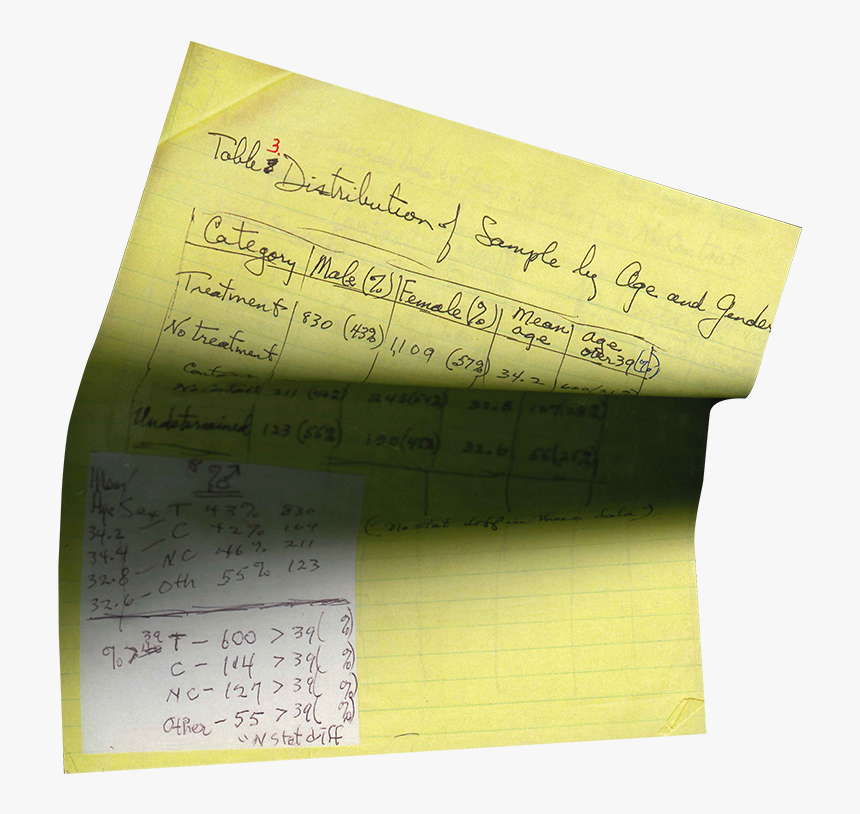 Table 3. Distribution of Sample by Age and Gender
Category Male (%) Female (%) Mean age age over 39 (%)
Treatment 830 (43%) 1,109 (57%) 34.2
No treatment
No contact 211 (46%) 248 (54%) 32.8 127 (28%)
Undetermined 123 (55%) 100 (45%) 32.6 55 (25%)
(: No stat diff in mean data)
Mean
Age Sex T 43% 830
34.2 – C 42% 164
34.4 – NC 46% 211
32.8 – Oth 55% 123
32.6
% > 39 T – 600 > 39 ( %)
C – 114 > 39 ( %)
NC – 127 > 39 ( %)
Other – 55 > 39 ( %)
N stat diff